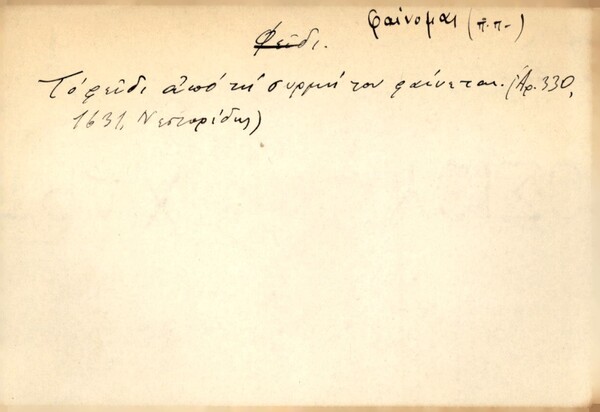 φαίνομαι (π.π.)
Φεῖδι.
Τὸ φεῖδι ἀπὸ τὴ συρμή του φαίνεται. (Ἀρ. 330,
1631, Νεστορίδης)